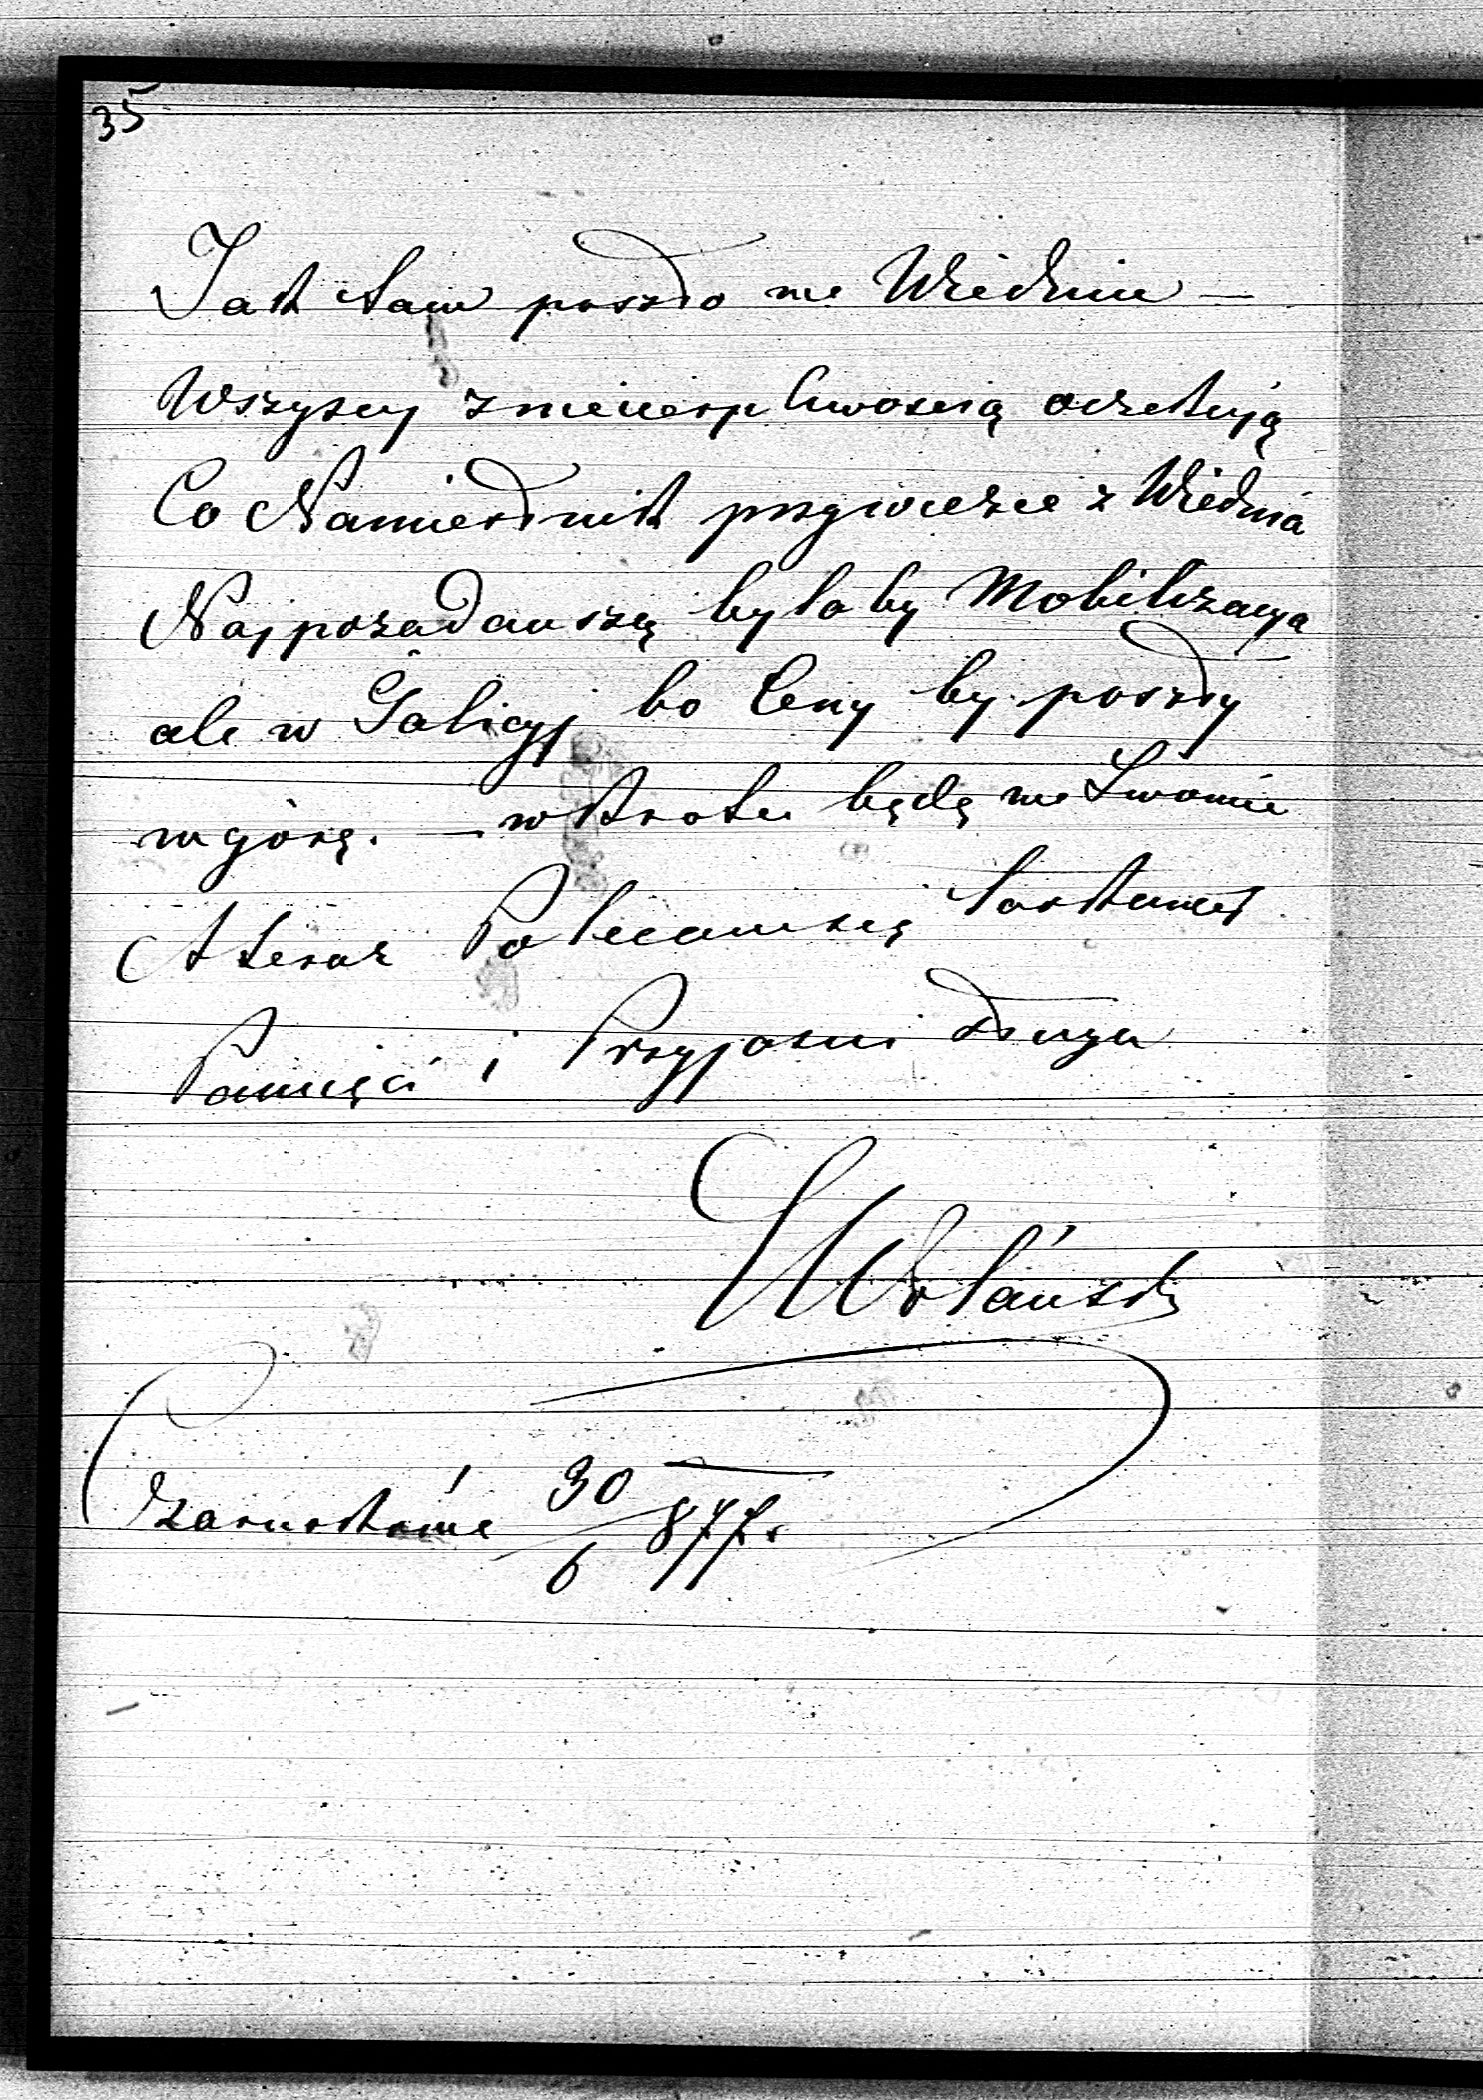 35
Jak tam poszło we Wiedniu —
Wszyscy z niecierpliwością oczekują
Co Namiestnik przywiezie z Wiednia
Najpożądańszą byłaby Mobilizacya
ale w Galicyj bo Ceny by poszły
w górę. — wkrotce będę we Lwowie
A teraz Polecam się łaskawej
Pamięci i Przyjaźni sługa
Wolański
Czarnokońce 30/6 877.